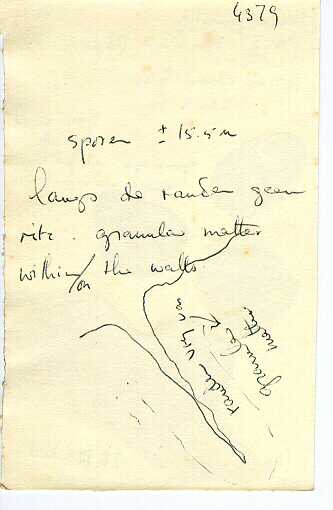 4379
sporen ± 15.5 u
langs de randen geen
ritz. granular matter
within/on the walls
randen vrij
granular
matter